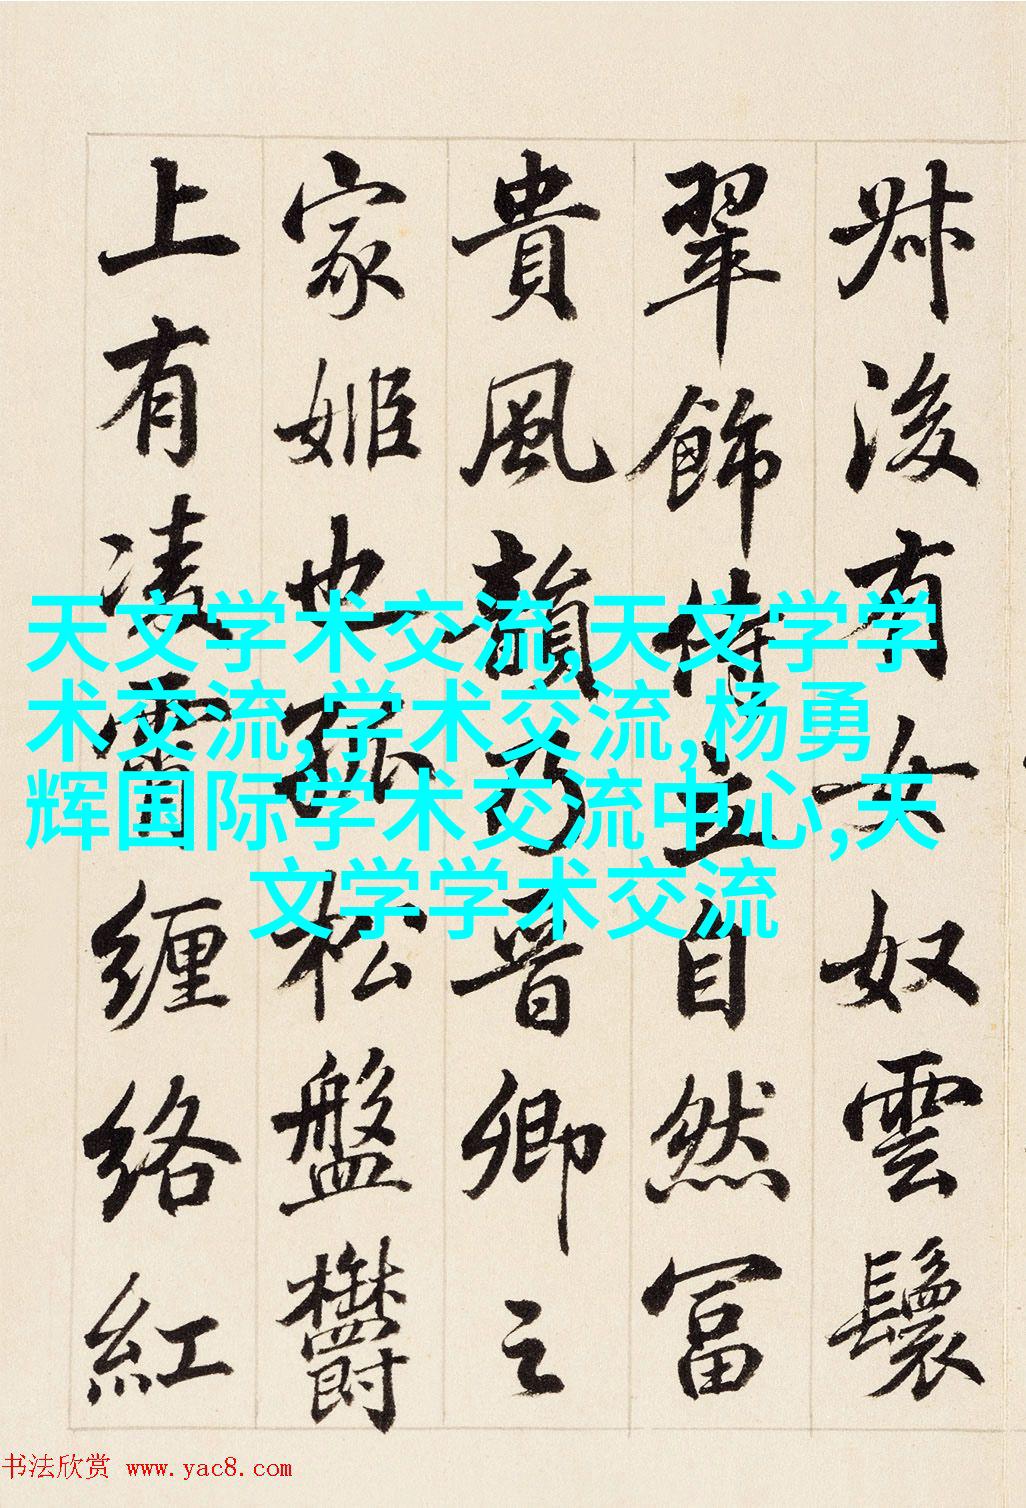 牀後有女奴雲鬟
翠飾侍立自然富
貴風韻乃晉卿之
家姬也孤松盤欝
上有凌霄纏絡紅
天文学术交流,天文学学
术交流,学术交流,杨勇
辉国际学术交流中心,天
文学学术交流
书法欣赏 www.yac8.com